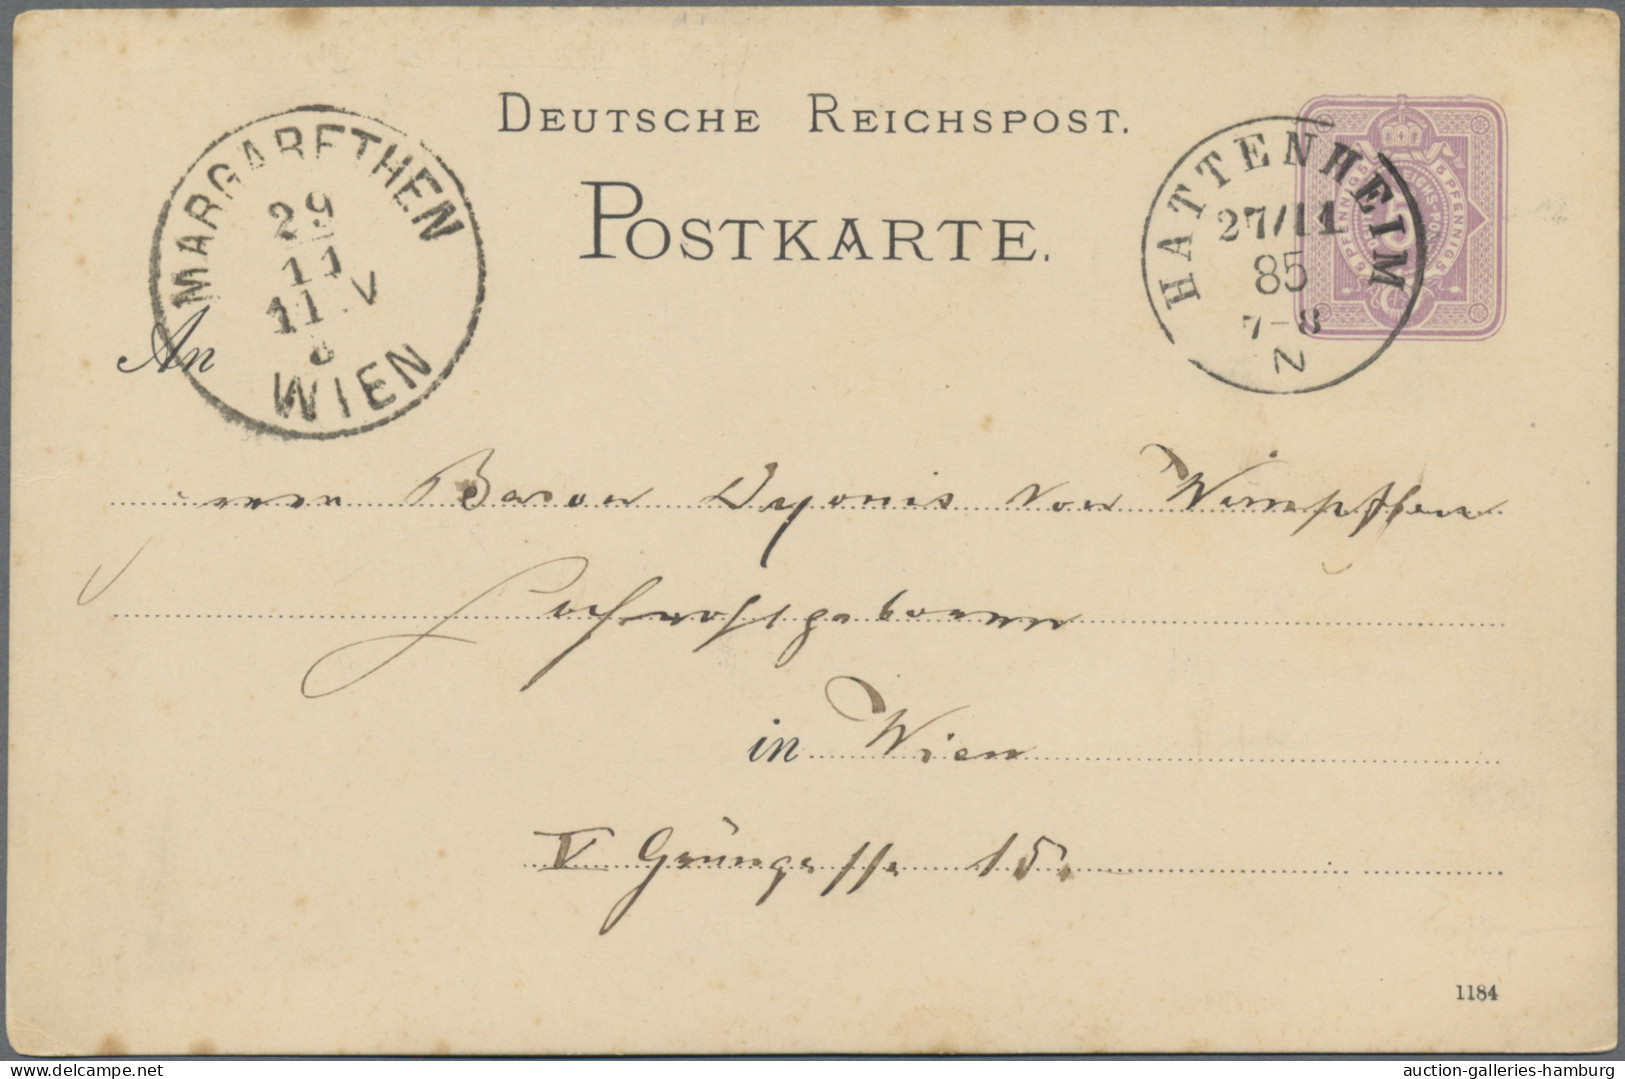 DEUTSCHE REICHSPOST.
POSTKARTE.
MARGARETHEN
29
11
11.V
WIEN
HATTENHEIM
27/11
85
7-8
N
5 PFENNIG 5
5 PFENNIG 5
An
Baron Dyonis von Wimpffen
Hochwohlgeboren
in Wien
V Grüngasse 15.
1184
auction-galleries-hamburg